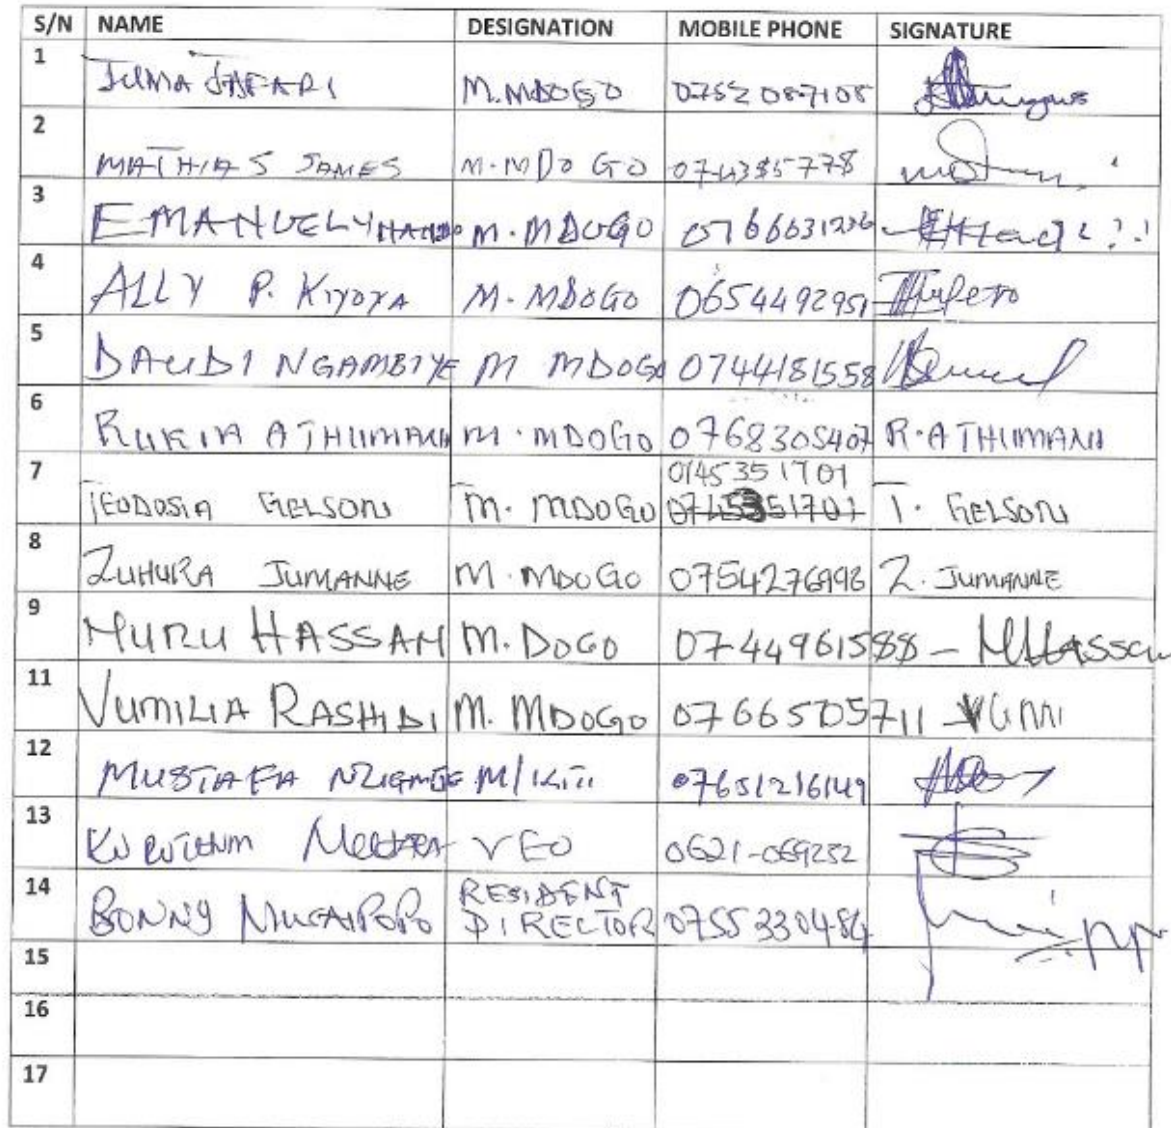 S/N NAME DESIGNATION MOBILE PHONE SIGNATURE
1 JUMA JAFARI M.MDOGO 0752087108
2 MATHIAS JAMES M.MDOGO 074385778
3 EMANUELY M.MDOGO 0766631236
4 ALLY P. KIYOYA M.MDOGO 0654492951
5 DAUDI NGAMBIYE M MDOGO 0744181558
6 RUKIA ATHUMANI M.MDOGO 0768305407 R.ATHUMANI
0745351701
7 TEODOSIA GELSONI M. MDOGO 0745351701 T. GELSONI
8 ZUHURA JUMANNE M.MDOGO 0754276998 Z. JUMANNE
9 NURU HASSAN M.DOGO 0744961588 - NHassan
11 VUMILIA RASHIDI M. MDOGO 0766505711 VUMI
12 MUSTAFA M/KITI 0765126149
13 VEO 0621-069252
RESIDENT
14 BONNY DIRECTOR 0755330484
15
16
17